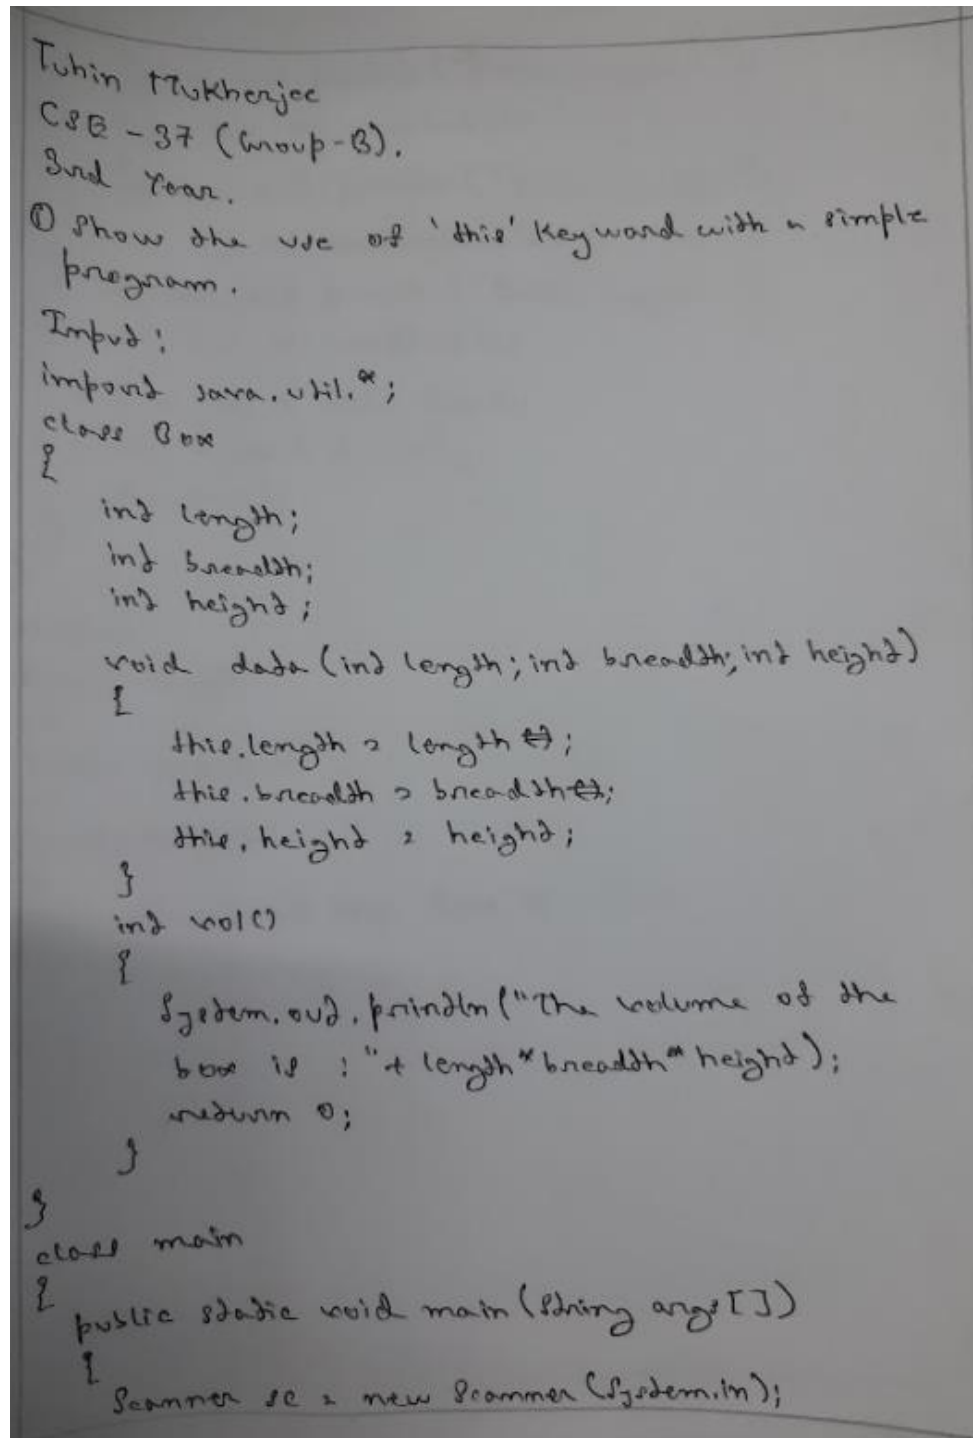 Tuhin Mukherjee
CSE - 37 (Group-B).
3rd Year.
① Show the use of 'this' Keyword with a simple
program.
Input:
import java.util.*;
class Box
{
int length;
int breadth;
int height;
void data (int length; int breadth; int height)
{
this.length = length;
this.breadth = breadth;
this.height = height;
}
int vol()
{
System.out.println("The volume of the
box is : "+ length*breadth*height);
return 0;
}
}
class main
{
public static void main (String args[])
{
Scanner sc = new Scanner (System.in);